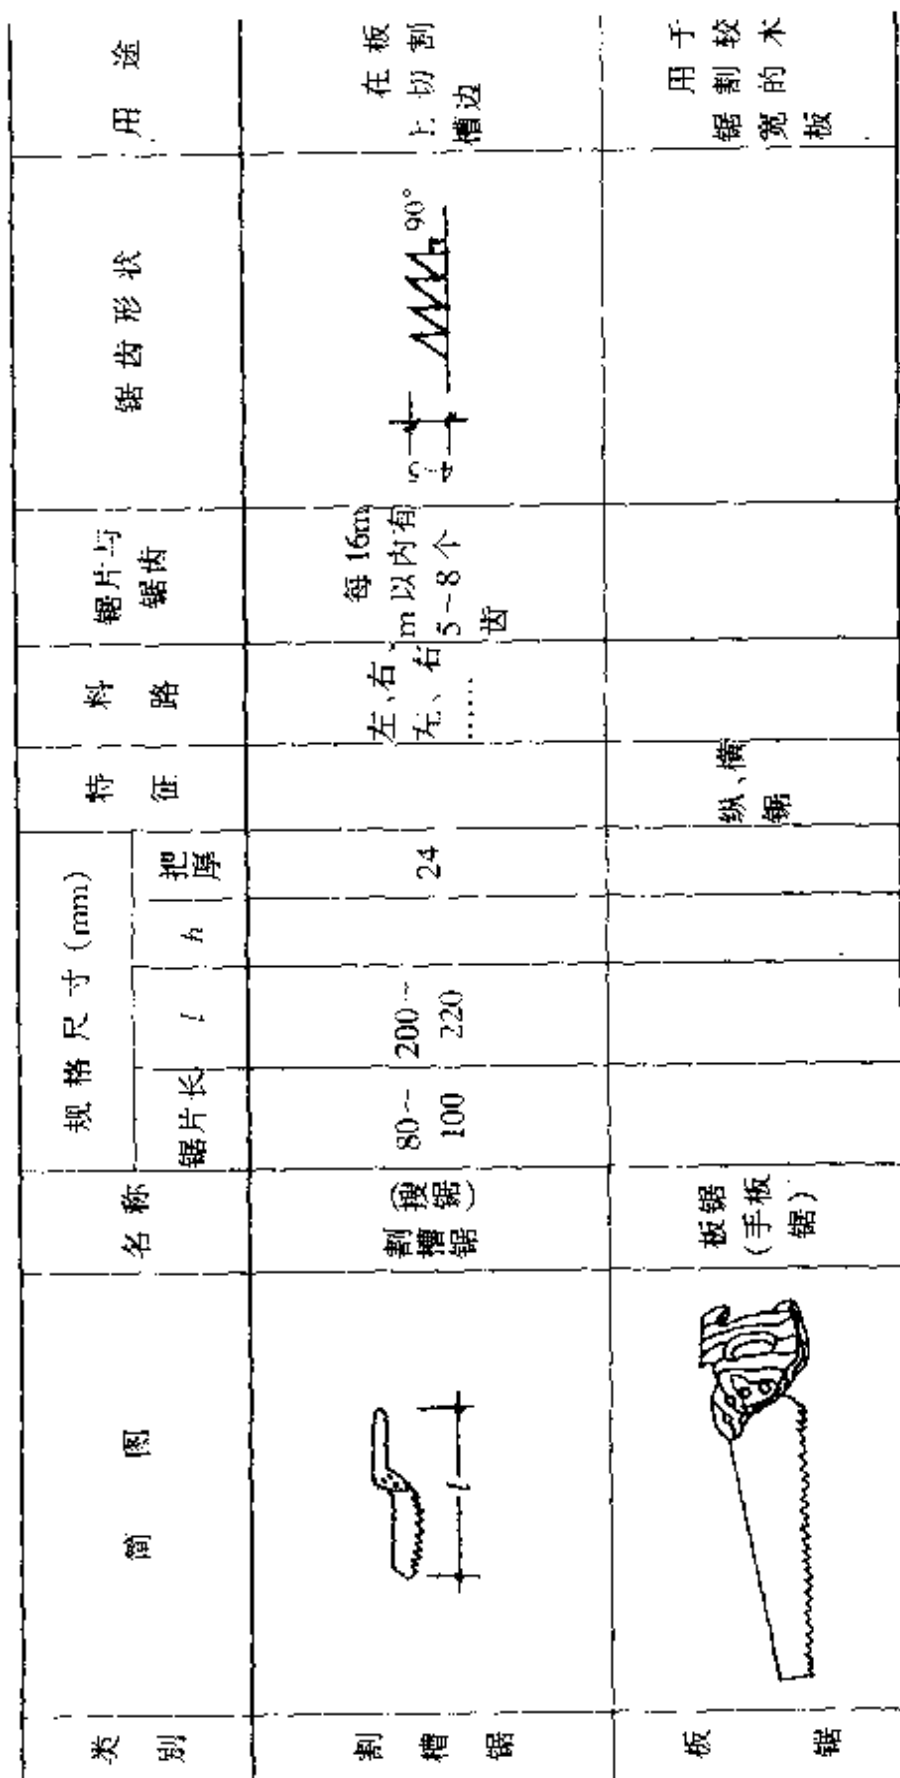 类别
简图
名称
规格尺寸(mm)
锯片长
l
h
把厚
特征
料路
锯片与
锯齿
锯齿形状
用途
割槽锯
l
割槽锯
(搜锯)
80~
100
200~
220
24
左、右、
左、右
……
每16m
m以内有
5~8个
齿
4~5
90°
在板
上切割
槽边
板锯
板锯
(手板
锯)
纵、横
锯
用于
锯割较
宽的木
板